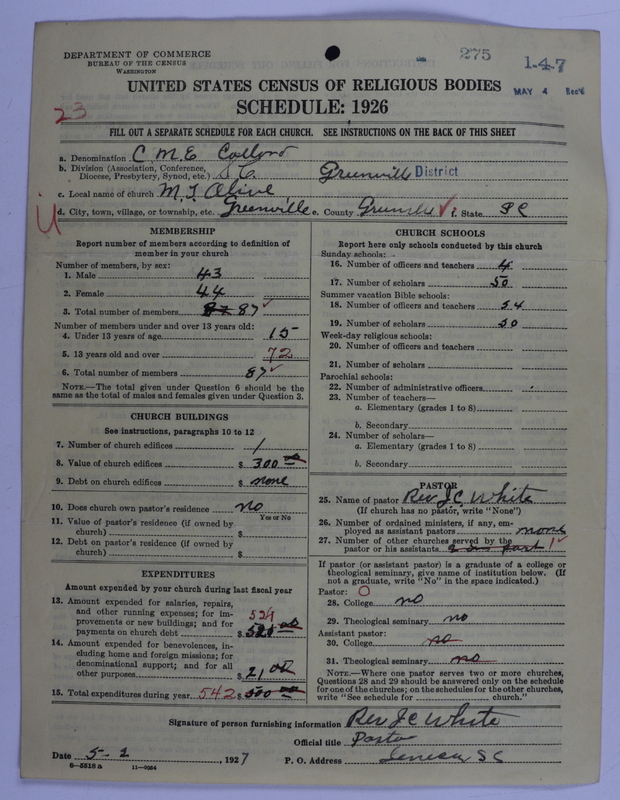 275
1-4-7
DEPARTMENT OF COMMERCE
BUREAU OF THE CENSUS
WASHINGTON
MAY 4
UNITED STATES CENSUS OF RELIGIOUS BODIES
SCHEDULE: 1926
23
FILL OUT A SEPARATE SCHEDULE FOR EACH CHURCH. SEE INSTRUCTIONS ON THE BACK OF THIS SHEET
a. Denomination C.M.E
b. Division (Association, Conference, Diocese, Presbytery, Synod, etc.) S.C. Greenville District
c. Local name of church M.T. Olive
d. City, town, village, or township, etc. Greenville e. County Greenville ✓ f. State SC
MEMBERSHIP
Report number of members according to definition of
member in your church
Number of members, by sex:
1. Male 43
2. Female 44
3. Total number of members 87 87 ✓
Number of members under and over 13 years old:
4. Under 13 years of age 15
5. 13 years old and over 72
6. Total number of members 87 ✓
NOTE.—The total given under Question 6 should be
same as the total of males and females given under Question 3.
CHURCH BUILDINGS
See instructions, paragraphs 10 to 12
7. Number of church edifices 1
8. Value of church edifices $ 300 00
9. Debt on church edifices $ none
10. Does church own pastor's residence? no
Yes or No
11. Value of pastor's residence (if owned by
church) $
12. Debt on pastor's residence (if owned by
church) $
EXPENDITURES
Amount expended by your church during last fiscal year
13. Amount expended for salaries, repairs,
and other running expenses; for im-
provements or new buildings; and for 521
payments on church debt $
14. Amount expended for benevolences, in-
cluding home and foreign missions; for
denominational support; and for all
other purposes $ 21 00
15. Total expenditures during year 542 $ 500 00
CHURCH SCHOOLS
Report here only schools conducted by this church
Sunday schools:
16. Number of officers and teachers 4
17. Number of scholars 50
Summer vacation Bible schools:
18. Number of officers and teachers 54
19. Number of scholars 50
Week-day religious schools:
20. Number of officers and teachers
21. Number of scholars
Parochial schools:
22. Number of administrative officers
23. Number of teachers—
a. Elementary (grades 1 to 8)
b. Secondary
24. Number of scholars—
a. Elementary (grades 1 to 8)
b. Secondary
PASTOR
25. Name of pastor Rev J C White
(If church has no pastor, write "None")
26. Number of ordained ministers, if any, em-
ployed as assistant pastors none
27. Number of other churches served by the
pastor or his assistants 1 ✓
If pastor (or assistant pastor) is a graduate of a college or
theological seminary, give name of institution below. (If
not a graduate, write "No" in the space indicated.)
Pastor:
28. College no
29. Theological seminary no
Assistant pastor:
30. College no
31. Theological seminary no
NOTE.—Where one pastor serves two or more churches,
Questions 28 and 29 should be answered only on the schedule
for one of the churches; on the schedules for the other churches,
write "See schedule for church."
Signature of person furnishing information Rev J C White
Official title Pastor
Date 5-2, 1927 P. O. Address Seneca SC
6-5518a 11-9954